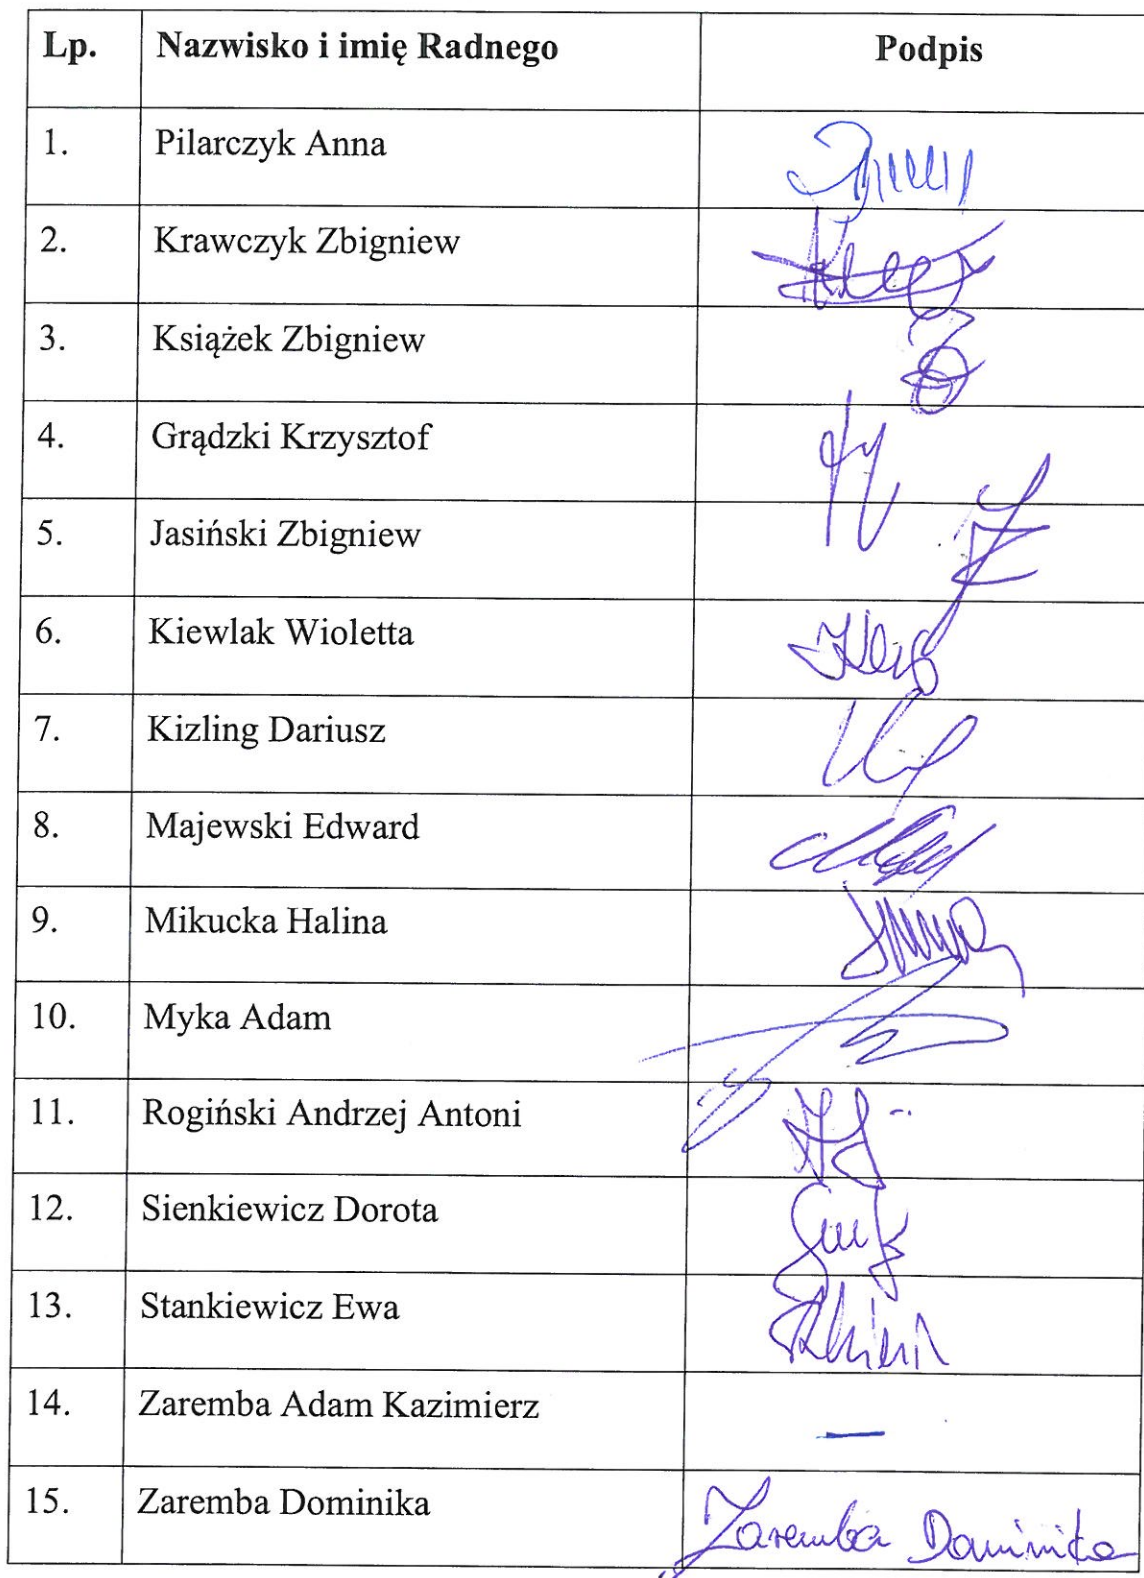 Lp. Nazwisko i imię Radnego Podpis
1. Pilarczyk Anna
2. Krawczyk Zbigniew
3. Książek Zbigniew
4. Grądzki Krzysztof
5. Jasiński Zbigniew
6. Kiewlak Wioletta
7. Kizling Dariusz
8. Majewski Edward
9. Mikucka Halina
10. Myka Adam
11. Rogiński Andrzej Antoni
12. Sienkiewicz Dorota
13. Stankiewicz Ewa
14. Zaremba Adam Kazimierz —
15. Zaremba Dominika Zaremba Dominika